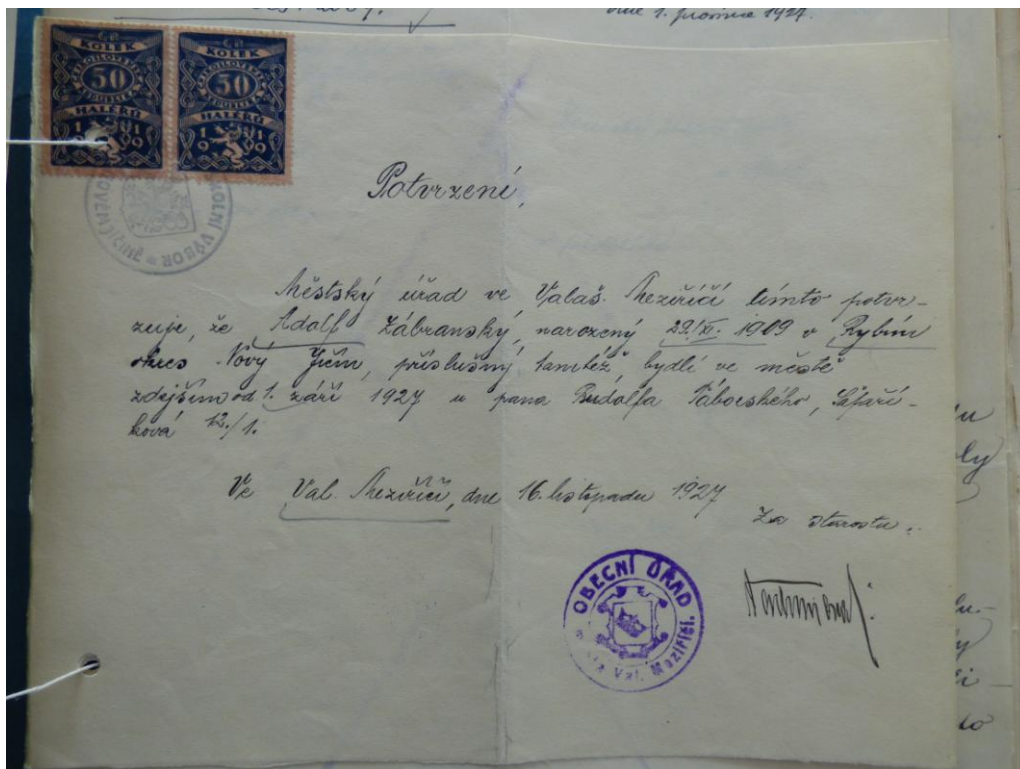 dne 1. prosince 1927.
KOLEK KOLEK
50 50
HALÉŘŮ HALÉŘŮ
1 1 1 1
9 9 9 9
Potvrzení,
Městský úřad ve Valaš. Meziříčí tímto potvr-
zuje, že Adolf Zábranský, narozený 29./XI. 1909 v Rybím
okres Nový Jičín, příslušný tamtéž, bydlí ve městě
zdejším od 1. září 1927 u pana Rudolfa Táborského, Šafaří-
ková 12./1.
Ve Val. Meziříčí, dne 16. listopadu 1927
Za starostu:
OBECNÍ ÚŘAD
Val. Meziříčí.